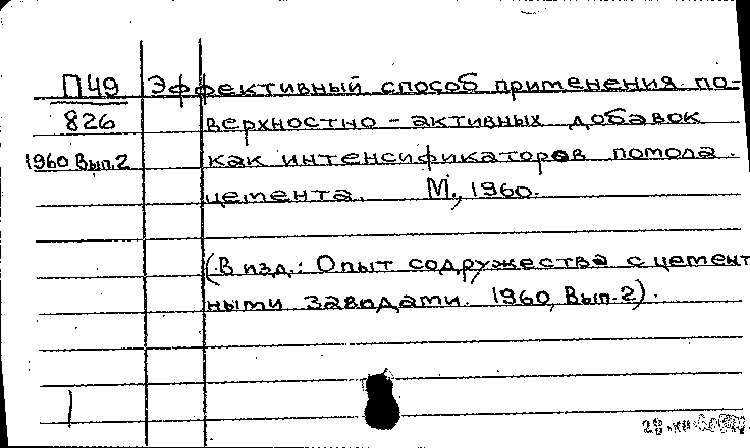 П49 Эффективный способ применения по-
826 верхностно-активных добавок
1960 Вып.2 как интенсификаторов помола
цемента. М., 1960.
(В изд.: Опыт содружества с цемент
ными заводами. 1960, Вып.2).